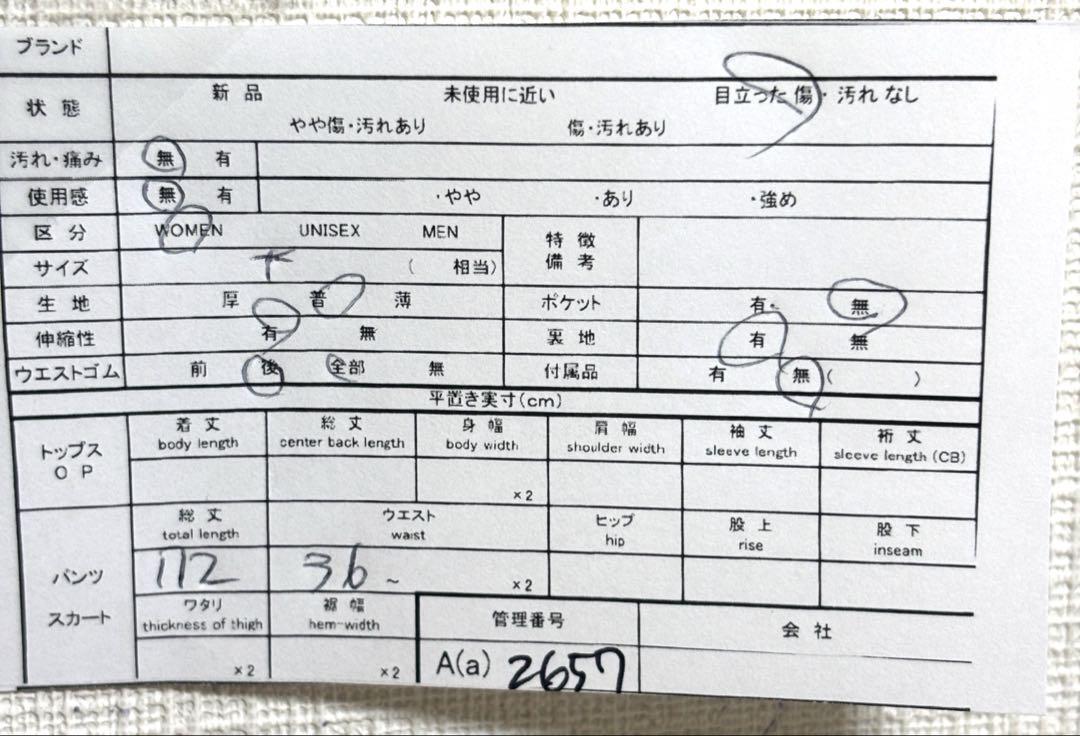 ブランド
状態 新品 未使用に近い 目立った傷・汚れなし
やや傷・汚れあり 傷・汚れあり
汚れ・痛み 無 有
使用感 無 有 ・やや ・あり ・強め
区分 WOMEN UNISEX MEN 特徴
備考
サイズ ( 相当)
生地 厚 普 薄 ポケット 有 無
伸縮性 有 無 裏地 有 無
ウエストゴム 前 後 全部 無 付属品 有 無 ( )
平置き実寸(cm)
トップス
OP
着丈 総丈 身幅 肩幅 袖丈 裄丈
body length center back length body width shoulder width sleeve length sleeve length (CB)
×2
総丈 ウエスト ヒップ 股上 股下
total length waist hip rise inseam
パンツ
スカート
112 36~ ×2
ワタリ 裾幅
thickness of thigh hem-width
×2 ×2
管理番号 会社
A(a) 2657